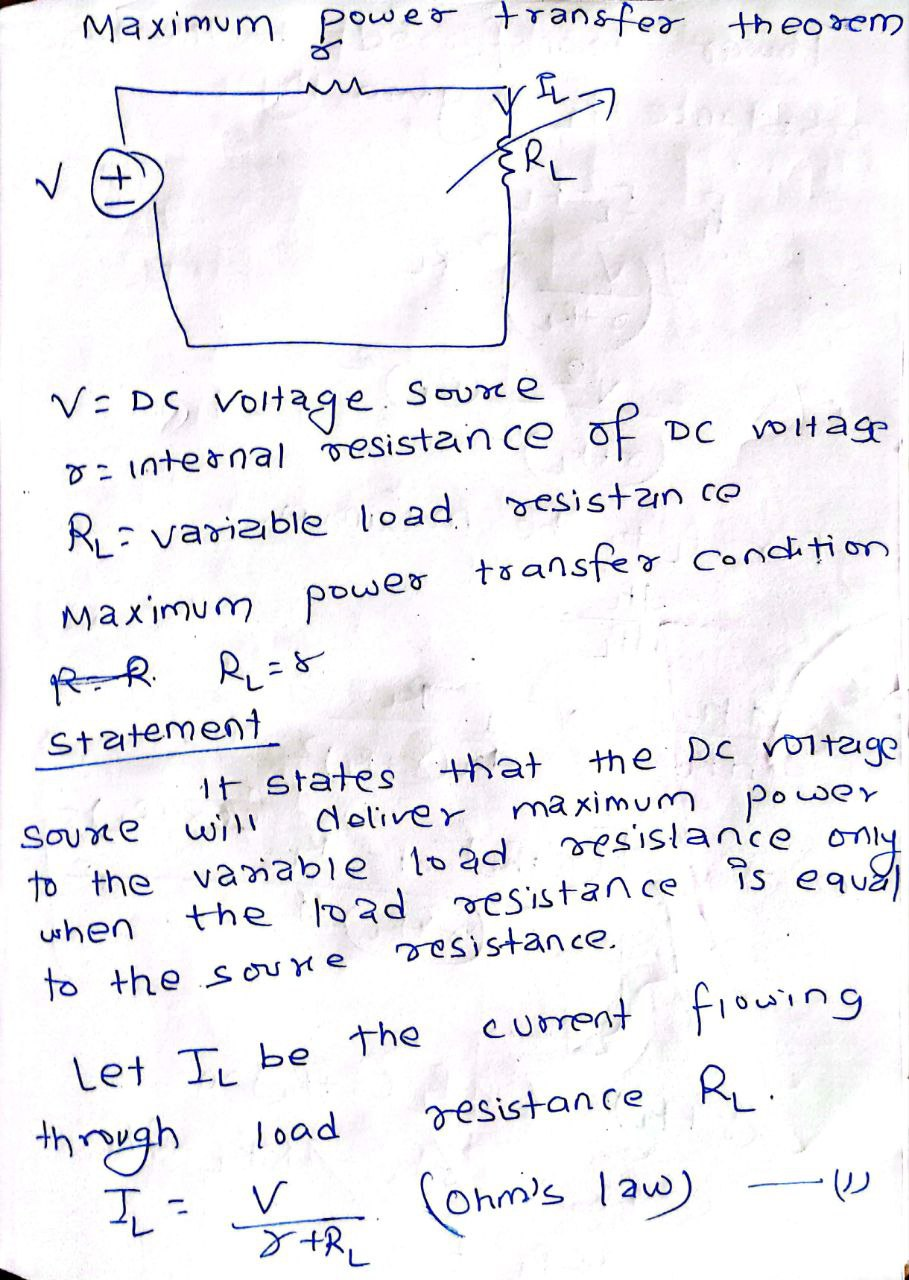 Maximum power transfer theorem
r
I_L
V + −
R_L
V = DC voltage source
r = internal resistance of DC voltage
R_L = variable load resistance
Maximum power transfer condition
R = R. R_L = r
Statement
It states that the DC voltage
source will deliver maximum power
to the variable load resistance only
when the load resistance is equal
to the source resistance.
Let I_L be the current flowing
through load resistance R_L.
I_L = V / (r + R_L) (ohm's law) — (1)